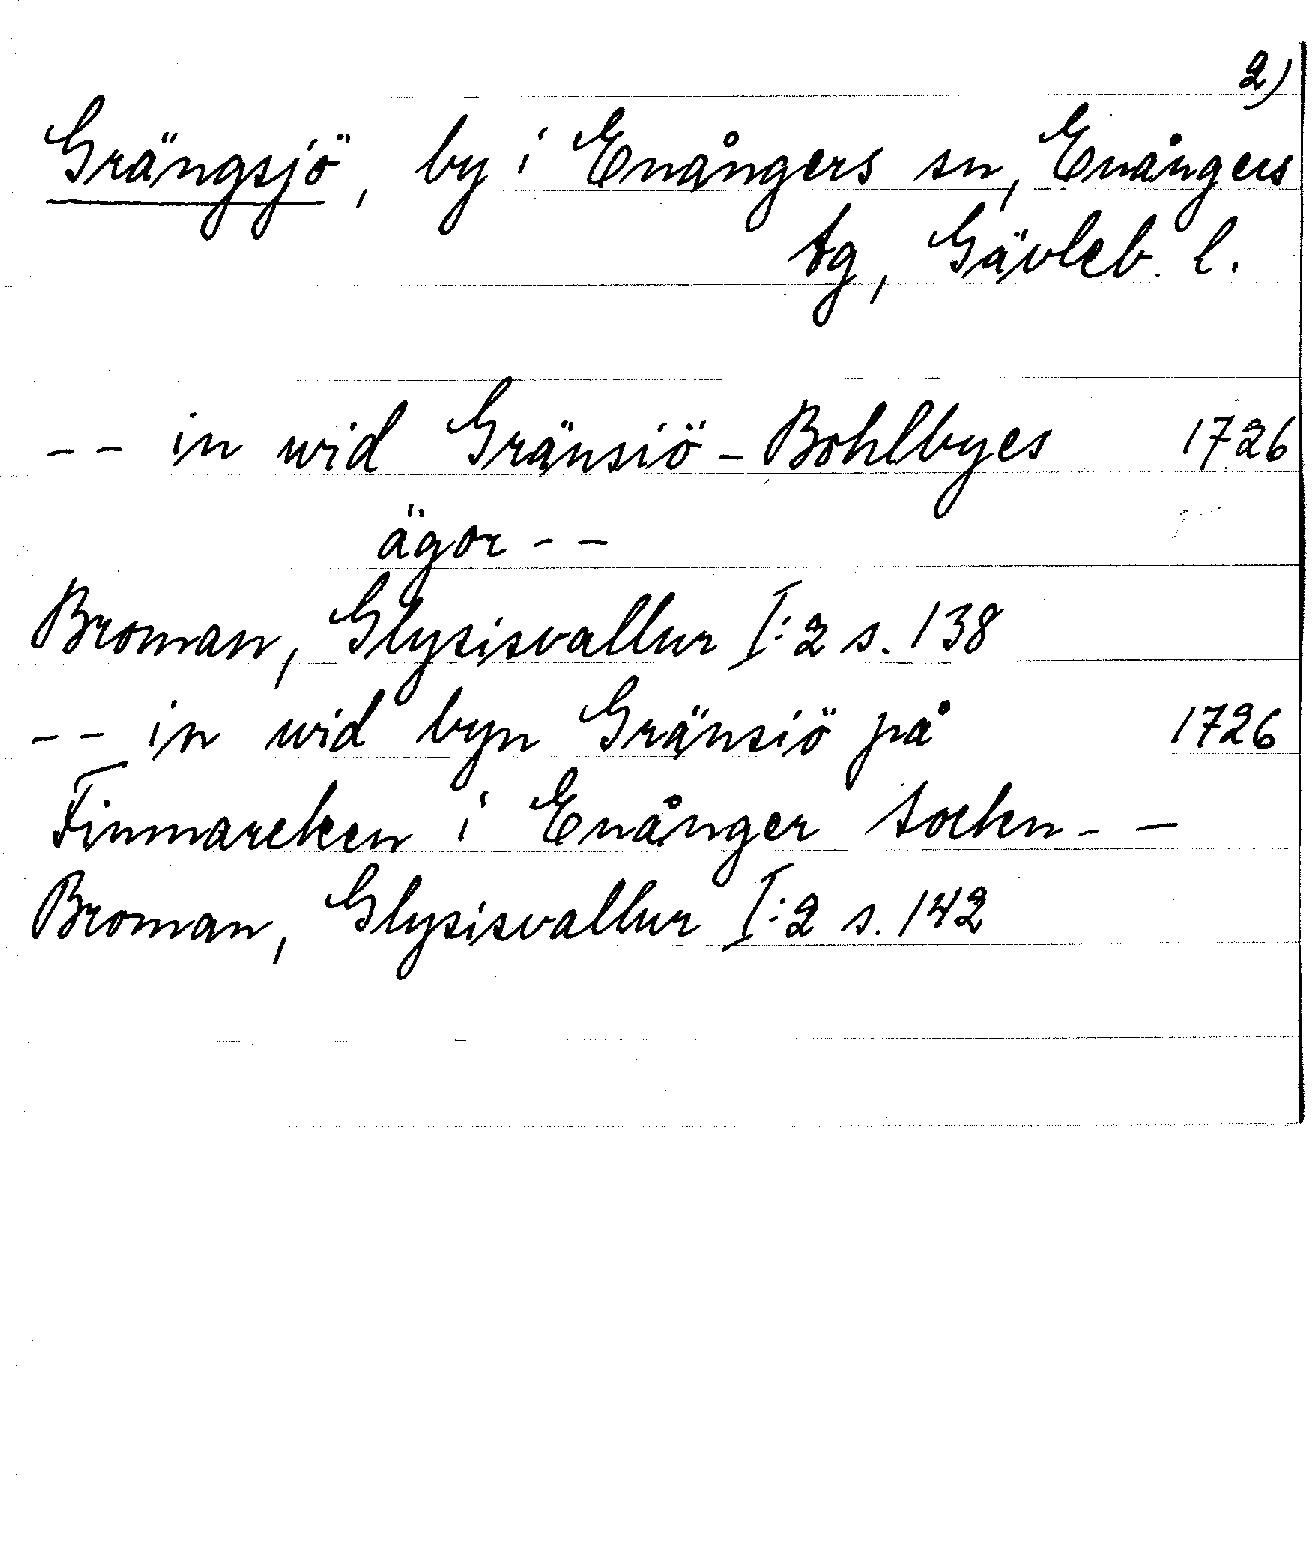 2)
Grängsjö, by i Enångers sn, Enångers
tg, Gävleb. l.
-- in wid Gränsiö-Bohlbyes 1726
ägor --
Broman, Glysisvallur I:2 s. 138
-- in wid byn Gränsiö på 1726
Finmarcken i Enånger sockn --
Broman, Glysisvallur I:2 s. 142